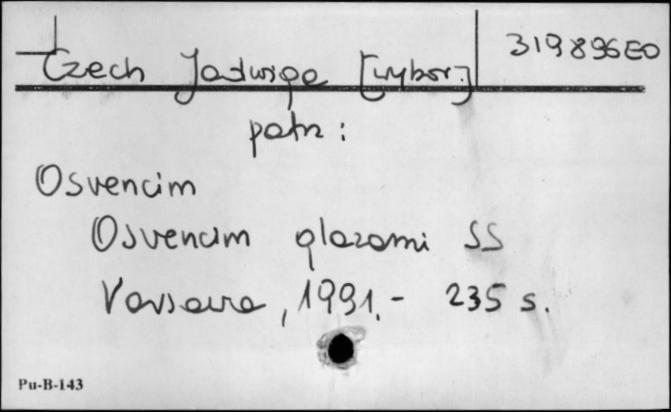 319896EO
Czech Jadwiga [wybor.]
patrz:
Osvencim
Osvencim glazami SS
Varsava, 1991.- 235 s.
Pu-B-143